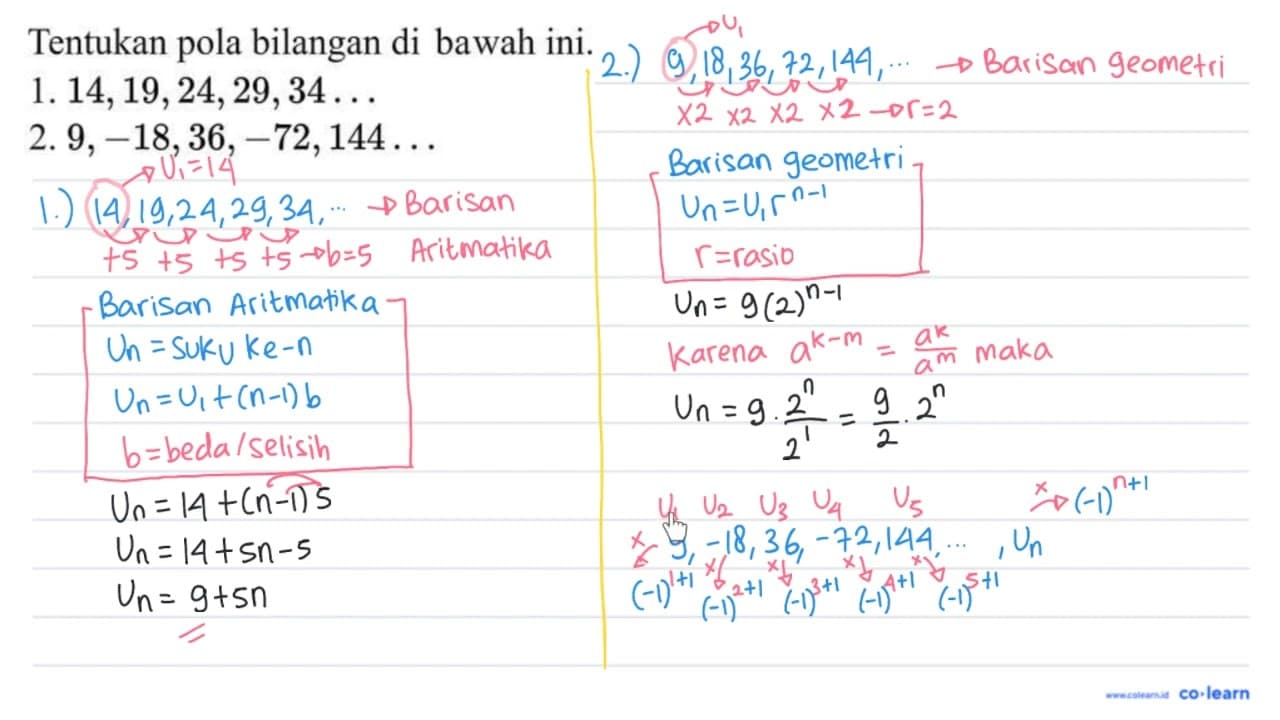 Tentukan pola bilangan di bawah ini.
1. 14, 19, 24, 29, 34 . . .
2. 9, −18, 36, −72, 144 . . .
U₁=14
1.) 14, 19, 24, 29, 34, ... → Barisan
+5 +5 +5 +5 → b=5 Aritmatika
Barisan Aritmatika
Un = suku ke-n
Un = U₁ + (n-1) b
b = beda/selisih
Un = 14 + (n-1) 5
Un = 14 + 5n - 5
Un = 9 + 5n
U₁
2.) 9, 18, 36, 72, 144, ... → Barisan geometri
×2 ×2 ×2 ×2 → r=2
Barisan geometri
Un = U₁ rⁿ⁻¹
r = rasio
Un = 9 (2)ⁿ⁻¹
Karena a^(k-m) = a^k/a^m maka
Un = 9 . 2ⁿ/2¹ = 9/2 . 2ⁿ
U₁ U₂ U₃ U₄ U₅ × → (-1)ⁿ⁺¹
9, -18, 36, -72, 144, ... , Un
× × × × ×
(-1)¹⁺¹ (-1)²⁺¹ (-1)³⁺¹ (-1)⁴⁺¹ (-1)⁵⁺¹
www.colearn.id co·learn